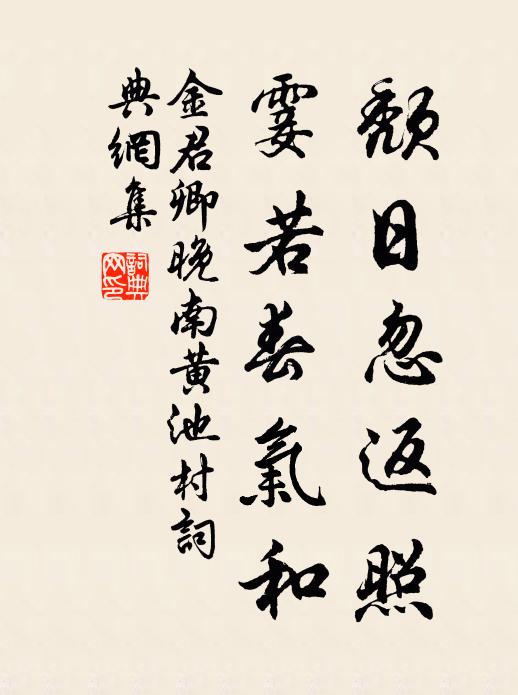 頹日忽返照
霎若春氣和
金君卿晚南黄池村詞
典網集
詞典
网印